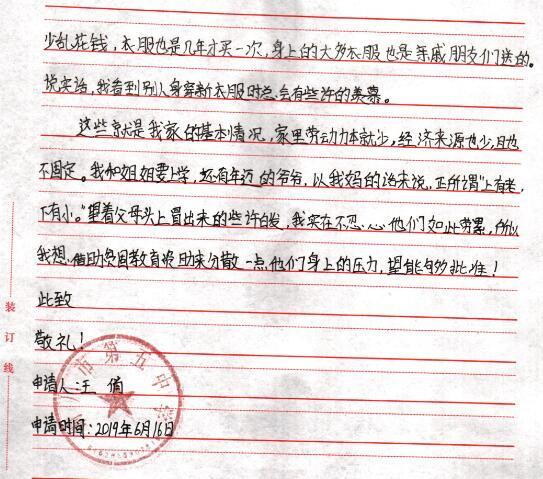 少乱花钱，衣服也是几年才买一次，身上的大多衣服也是亲戚朋友们送的。
说实话，我看到别人身穿新衣服时总会有些许的羡慕。
这些就是我家的基本情况，家里劳动力本就少，经济来源也少，且也
不固定。我和姐姐要上学，还有年迈的爷爷，以我妈的话来说，正所谓"上有老，
下有小。"望着父母头上冒出来的些许白发，我实在不忍心他们如此劳累，所以
我想借助贫困教育资助来分散一点他们身上的压力，望能够批准！
此致
敬礼！
申请人：王
申请时间：2019年6月16日
装订线
市第五中学